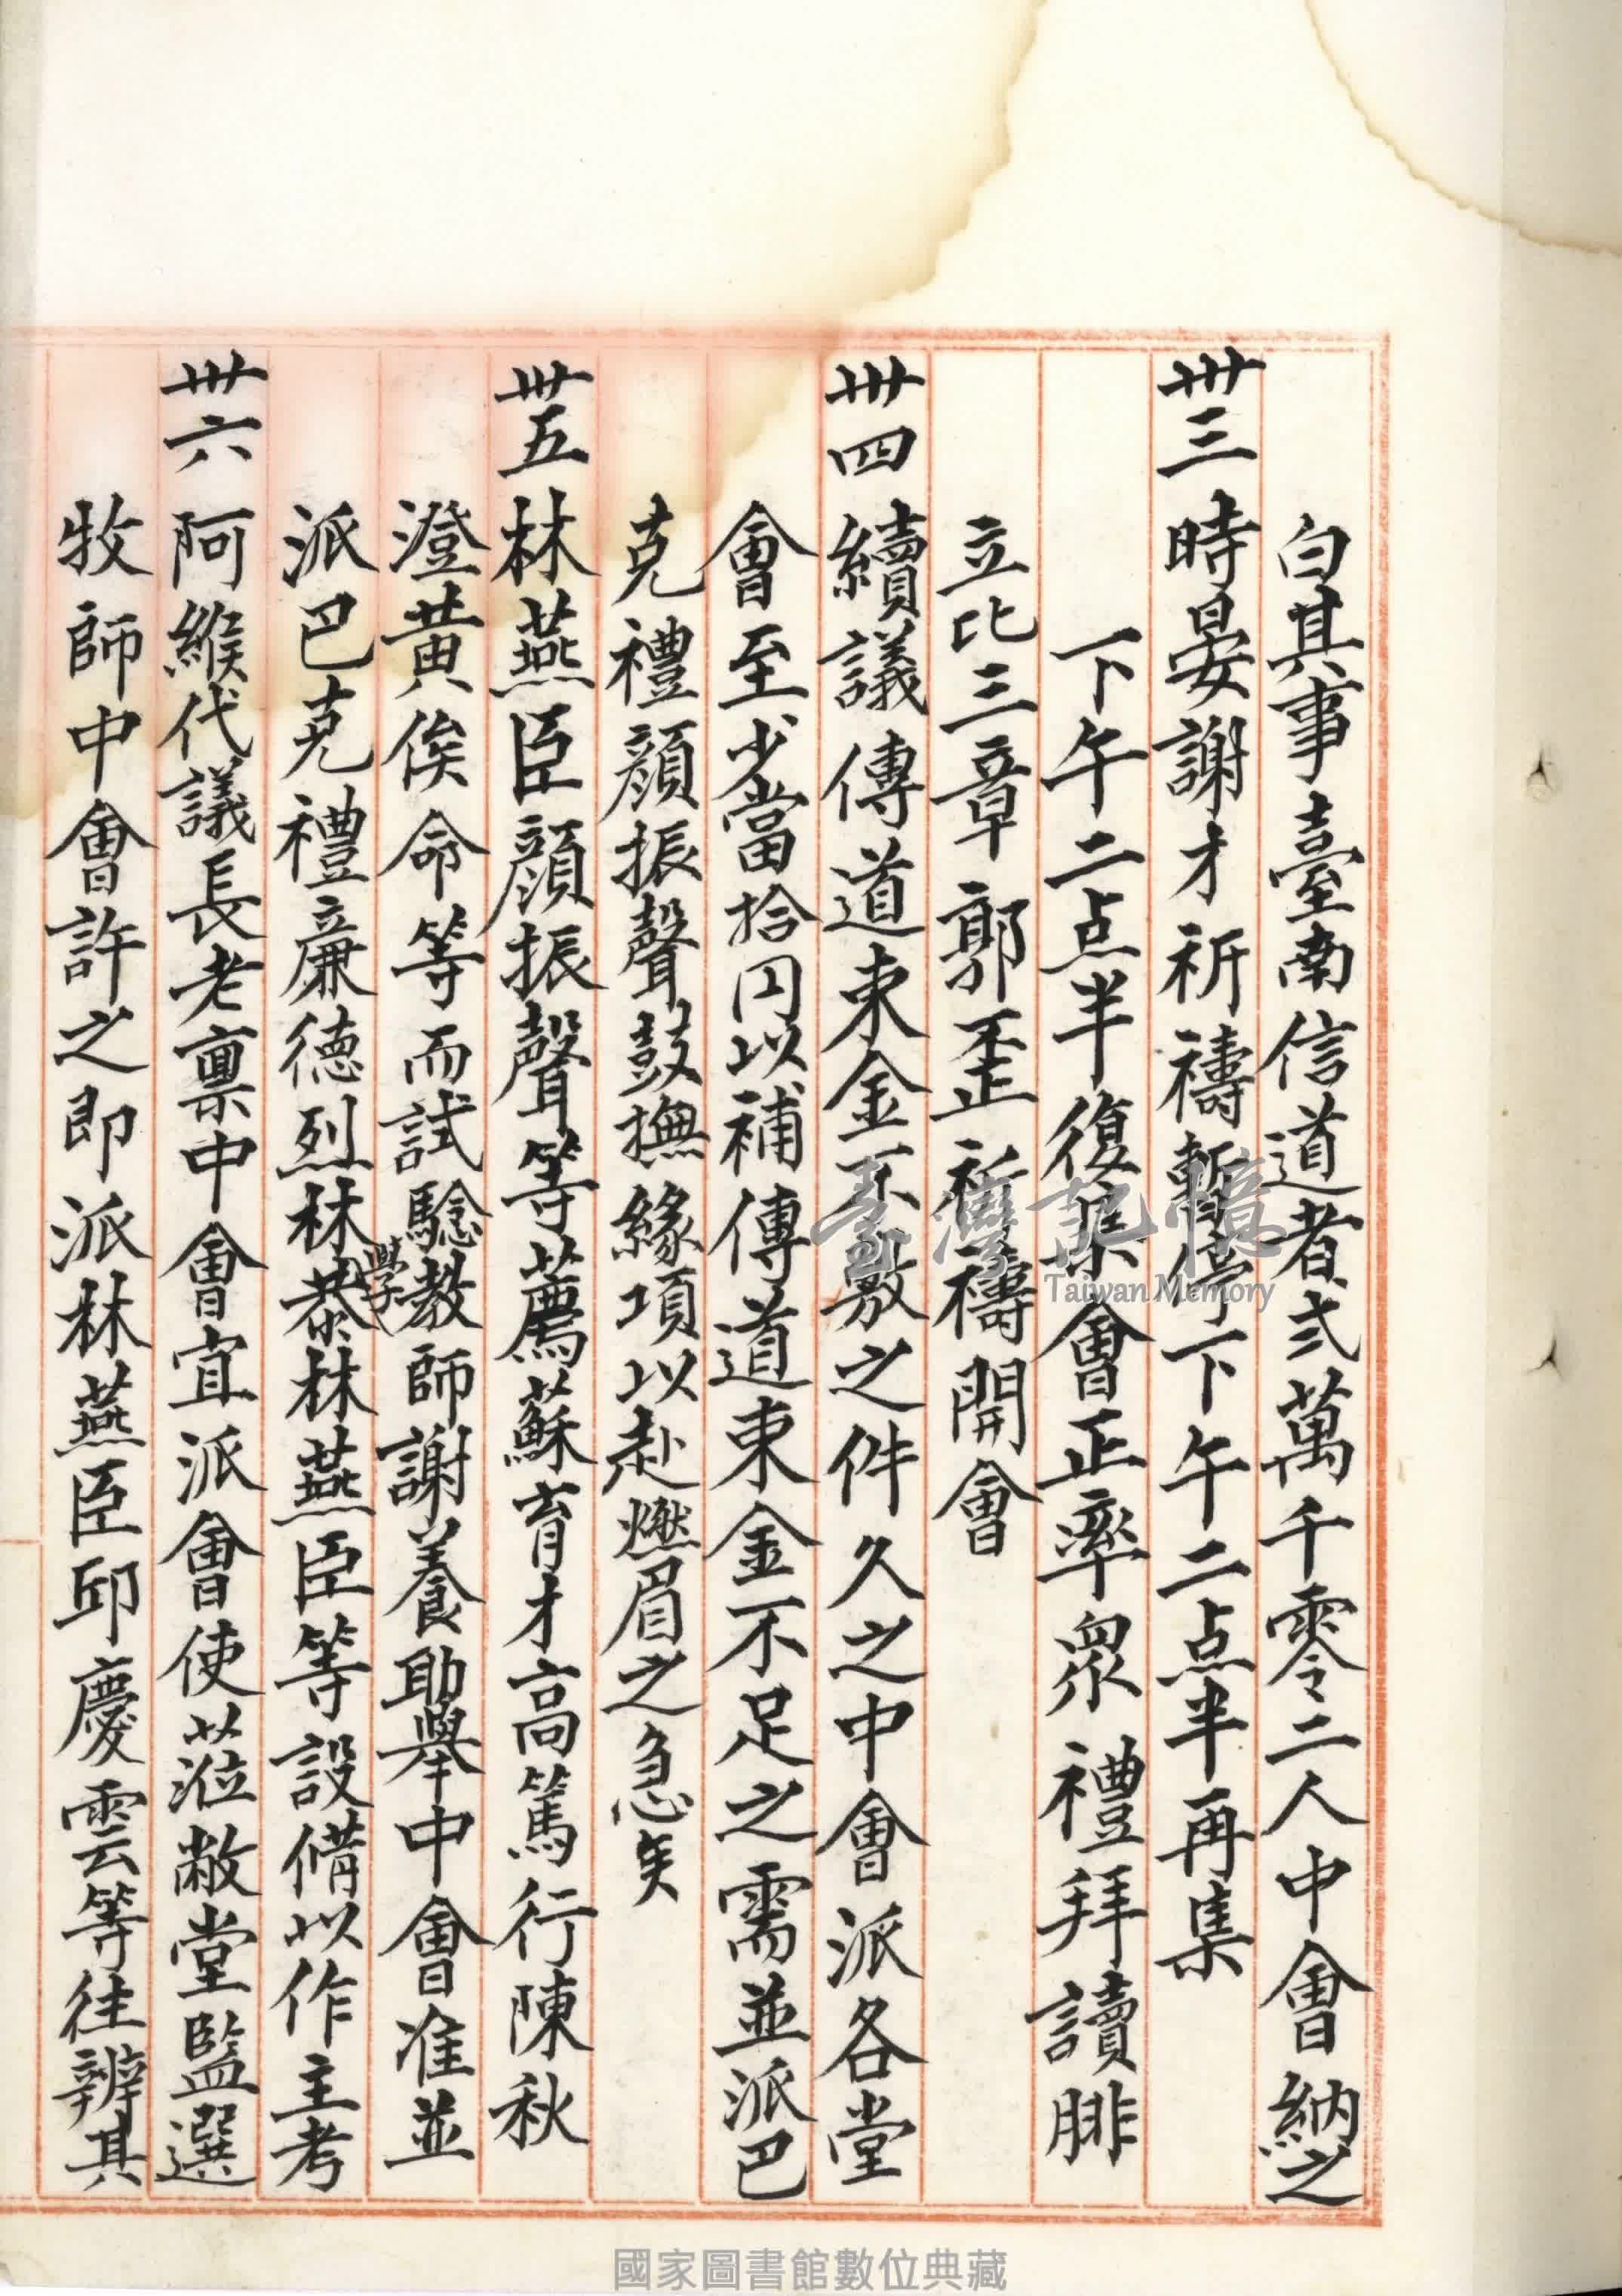 白其事臺南信道者弍萬千零二人中會納之
卅三 時晏謝才祈禱暫停下午二点半再集
下午二点半復集會正率眾禮拜讀腓
立比三章郭歪祈禱開會
卅四 續議傳道束金不敷之件久之中會派各堂
會至少當拾円以補傳道束金不足之需並派巴
克禮顏振聲鼓撫緣項以赴燃眉之急矣
卅五 林燕臣顏振聲等薦蘇育才高篤行陳秋
澄黄俟命等而試騐教學師謝養助舉中會准並
派巴克禮廉德烈林恭林燕臣等設備以作主考
卅六 阿緱代議長老禀中會宜派會使蒞敝堂監選
牧師中會許之即派林燕臣邱慶雲等往辨其
臺灣記憶
Taiwan Memory
國家圖書館數位典藏